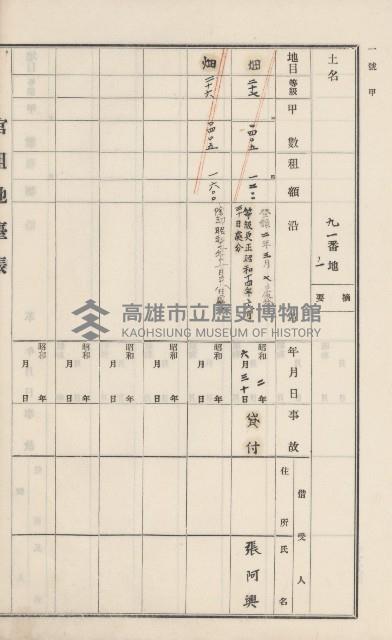 一號甲
土名
九一番地ノ一
摘要
地目 等級 甲數 租額 沿
畑 二十七 〇四〇五 一二〇
登錄二年三月
等級更正昭和十四年
三十日處分
畑 二十六 〇四〇五 一六〇〇
官租地臺帳
高雄市立歷史博物館
KAOHSIUNG MUSEUM OF HISTORY
年月日 事故 借受人 住所 氏名
昭和二年六月三十日 貸付 張阿興
昭和 年 月 日
昭和 年 月 日
昭和 年 月 日
昭和 年 月 日
昭和 年 月 日